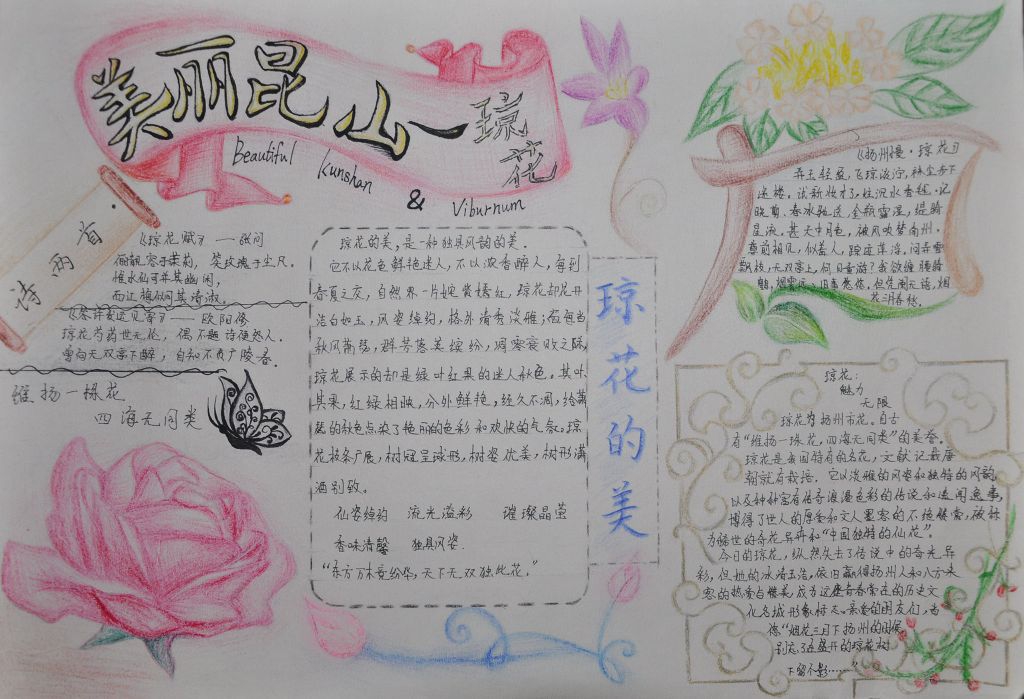 美丽昆山—琼花
Beautiful Kunshan & Viburnum
诗两首
《琼花赋》——张问
俪靓容于茉莉，笑玫瑰于尘凡，
惟水仙可并其幽闲，
而江梅似同其清淑。
《答许发运见寄》——欧阳修
琼花芍药世无伦，偶不题诗便怨人。
曾向无双亭下醉，自知不负广陵春。
维扬一株花
四海无同类
琼花的美，是一种独具风韵的美。
它不以花色鲜艳迷人，不以浓香醉人，每到
春夏之交，自然界一片姹紫嫣红，琼花却花开
洁白如玉，风姿绰约，格外清秀淡雅；而每当
秋风萧瑟，群芳落英缤纷，凋零衰败之际，
琼花展示的却是绿叶红果的迷人秋色。其叶
其果，红绿相映，分外鲜艳，经久不凋，给萧
瑟的秋色点染了艳丽的色彩和欢快的气氛。琼
花枝条广展，树冠呈球形，树姿优美，树形潇
洒别致。
仙姿绰约 流光溢彩 璀璨晶莹
香味清馨 独具风姿
“东方万木竞纷华，天下无双独此花。”
琼花的美
《扬州慢·琼花》
弄玉轻盈，飞琼淡泞，袜尘步下
迷楼。试新妆才了，炷沉水香毬。记
晓剪、春冰驰送，金瓶露湿，缇骑
星流。甚天中月色，被风吹梦南州。
尊前相见，似羞人，踪迹萍浮。问弄雪
飘枝，无双亭上，何日重游？我欲缠腰骑
鹤，烟霄远、旧事悠悠。但凭阑无语，烟
花三月春愁。
琼花：
魅力
无限
琼花为扬州市花。自古
有“维扬一株花，四海无同类”的美誉。
琼花是我国特有的名花，文献记载唐
朝就有栽培。它以淡雅的风姿和独特的风韵，
以及种种富有传奇浪漫色彩的传说和逸闻逸事，
博得了世人的厚爱和文人墨客的不绝赞赏，被称
为稀世的奇花异卉和“中国独特的仙花”。
今日的琼花，纵然失去了传说中的奇光异
彩，但她的冰清玉洁，依旧赢得扬州人和八方来
客的热爱与赞美，成为这座青春常在的历史文
化名城形象标志。亲爱的朋友们，当
您“烟花三月下扬州”的时候，
别忘了在盛开的琼花树
下留个影……